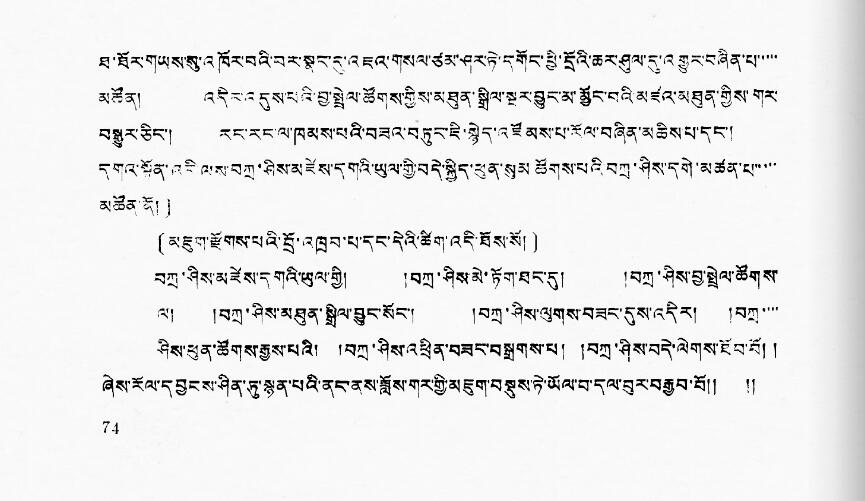 ཐ་ཐོར་གཡས་སུ་འཁོར་བའི་བར་སྣང་དུ་འཇའ་གསལ་ཙམ་ཤར་ཏེ་དགོང་ཕྱི་དྲོའི་ཆར་ཤུལ་དུ་འགྱུར་བཞིན་པ་་་་
མཚོན། འདིར་འདུས་པའི་བྱ་སྤྲེལ་ཚོགས་ཀྱིས་མཐུན་སྒྲིལ་སྔར་བྱུང་མ་མྱོང་བའི་མཛའ་མཐུན་གྱིས་གར་
བསྒྱུར་ཅིང་། རང་རང་ལ་ཁམས་པའི་བཟའ་བཏུང་ཇི་སྙེད་འཛོམས་པ་རོལ་བཞིན་མཆིས་པ་དང་།
དགའ་སྟོན་འདི་ལས་བཀྲ་ཤིས་མཛེས་དགའི་ཡུལ་གྱི་བདེ་སྐྱིད་ཕུན་སུམ་ཚོགས་པའི་བཀྲ་ཤིས་དགེ་མཚན་པ་་་་
མཚོན་ཏོ།)
(མཇུག་རྫོགས་པའི་བྲོ་འཁྲབ་པ་དང་དེའི་ཚིག་འདི་ཐོས་སོ།)
བཀྲ་ཤིས་མཛེས་དགའི་ཡུལ་གྱི། །བཀྲ་ཤིས་མེ་ཏོག་ཐང་དུ། །བཀྲ་ཤིས་བྱ་སྤྲེལ་ཚོགས་
ལ། །བཀྲ་ཤིས་མཐུན་སྒྲིལ་བྱུང་སོང་། །བཀྲ་ཤིས་ལུགས་བཟང་དུས་འདིར། །བཀྲ་་་་
ཤིས་ཕུན་ཚོགས་རྒྱས་པའི། །བཀྲ་ཤིས་འཕྲིན་བཟང་བསྒྲགས་པ། །བཀྲ་ཤིས་བདེ་ལེགས་ངོ་བ་བོ།།
ཞེས་རོལ་དབྱངས་ཤིན་ཏུ་སྙན་པའི་ནང་ནས་ཟློས་གར་གྱི་མཇུག་བསྡུས་ཏེ་ཡོལ་བ་དལ་བུར་བརྒྱབ་བོ།། །།
74